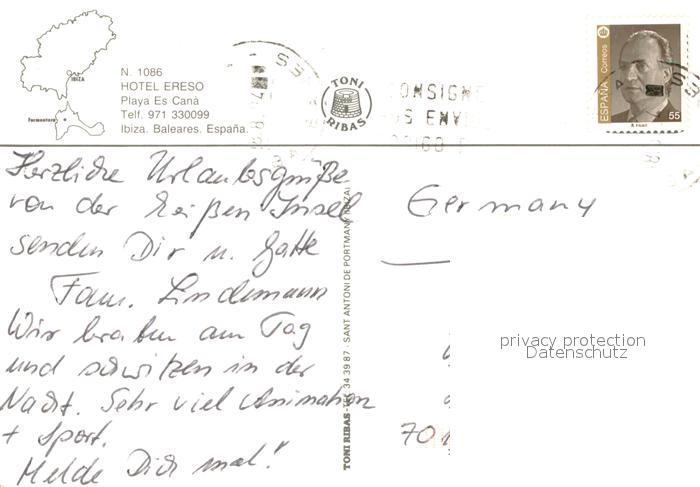 IBIZA
Formentera
N. 1086
HOTEL ERESO
Playa Es Canà
Telf. 971 330099
Ibiza. Baleares. España.
TONI
RIBAS
CONSIGNE
ESPAÑA Correos
55
Herzliche Urlaubsgrüße
von der heißen Insel
senden Dir u. Gatte
Fam. Lindemann
Wir braten am Tag
und schwitzen in der
Nacht. Sehr viel Animation
+ Sport.
Melde Dich mal!
TONI RIBAS - Tel. 34 39 87 - SANT ANTONI DE PORTMANY (IBIZA)
Germany
70
privacy protection
Datenschutz